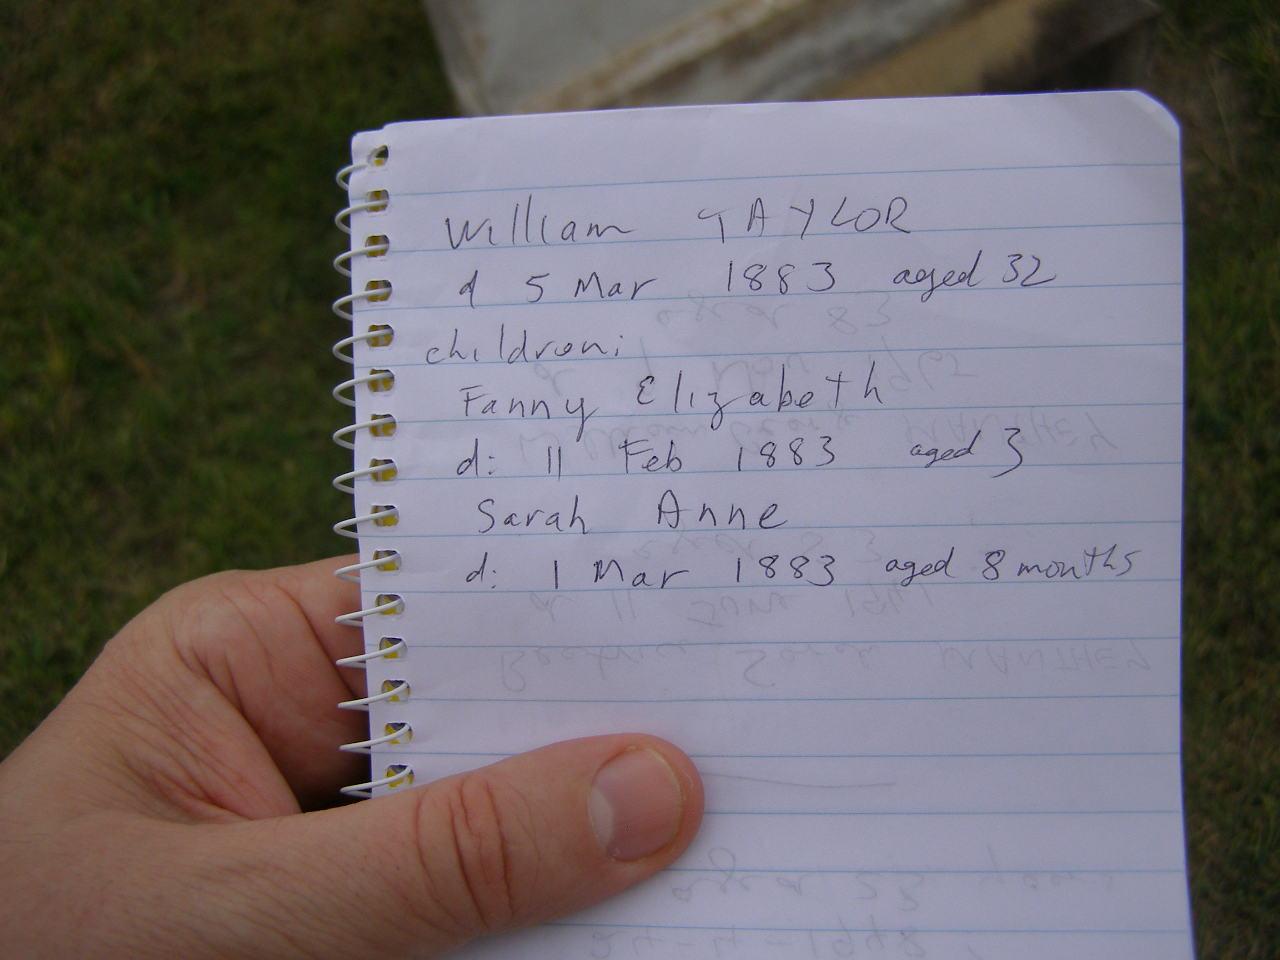 William TAYLOR
d 5 Mar 1883 aged 32
children:
Fanny Elizabeth
d: 11 Feb 1883 aged 3
Sarah Anne
d: 1 Mar 1883 aged 8 months